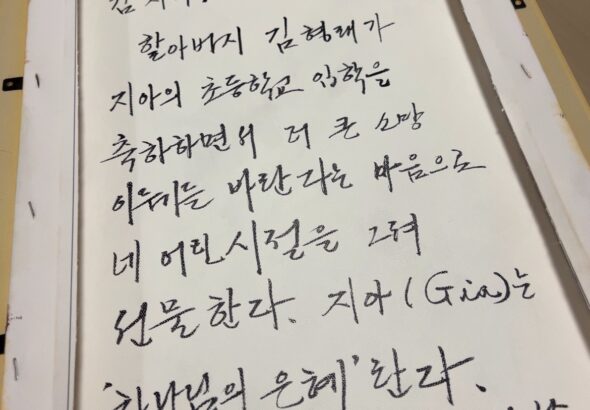 할아버지 김형래가
지아의 초등학교 입학을
축하하면서 더 큰 소망
이루기를 바란다는 마음으로
네 어린시절을 그려
선물한다. 지아(Gia)는
'하나님의 은혜'란다.